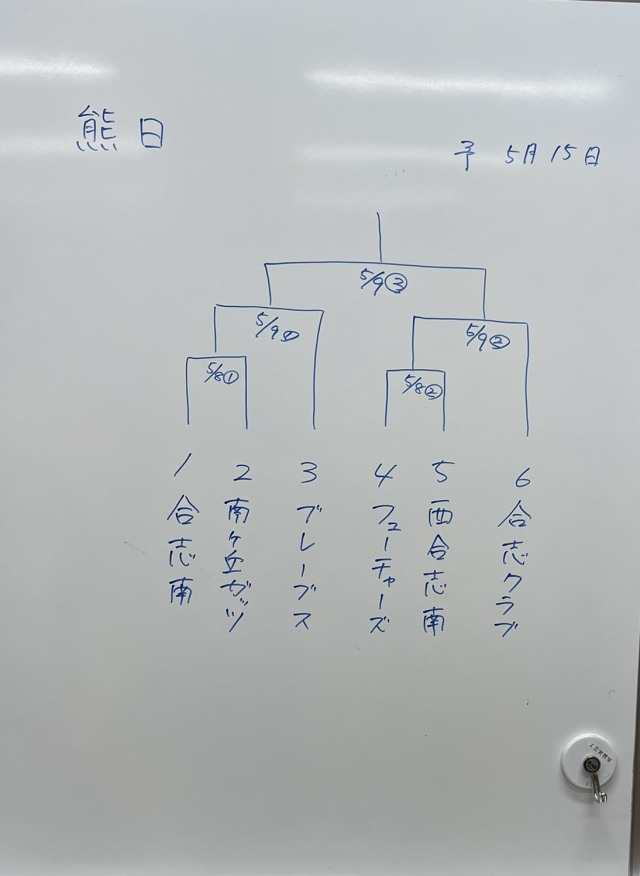 熊日
予 5月15日
5/9③
5/9①
5/9②
5/8①
5/8②
1 合志南
2 南ヶ丘ガッツ
3 ブレーブス
4 フューチャーズ
5 西合志南
6 合志クラブ